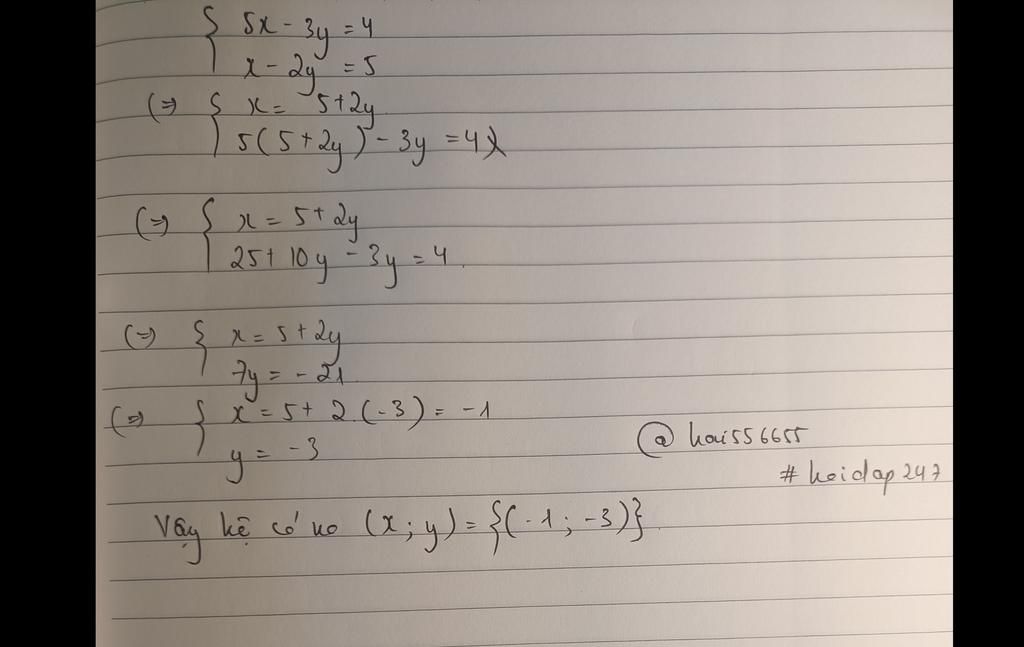 { 5x - 3y = 4
x - 2y = 5
(=) { x = 5+2y
5(5+2y) - 3y = 4
(=) { x = 5+2y
25+10y - 3y = 4.
(=) { x = 5+2y
7y = -21
(=) { x = 5+ 2.(-3) = -1
y = -3
@hoi556655
#hoidap247
Vậy hệ có no (x; y) = {(-1; -3)}